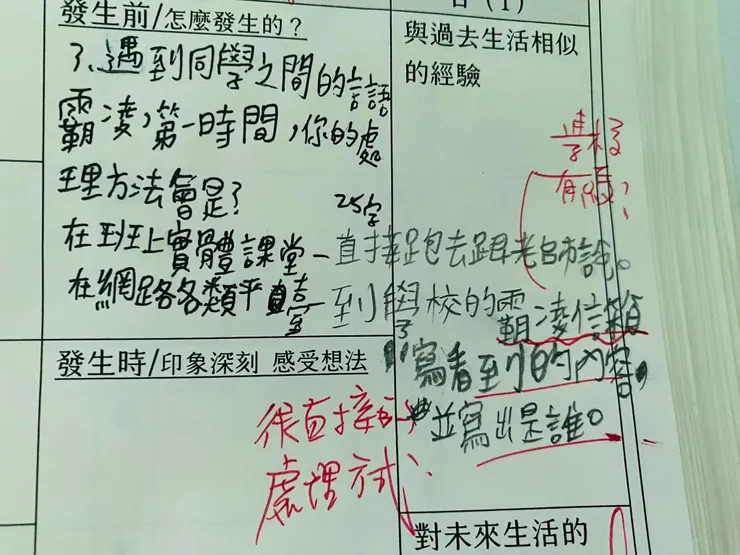 發生前/怎麼發生的？
了、遇到同學之間的言語
霸凌，第一時間，你的處
理方法會是？
25字
在班上實體課堂－直接跑去跟老師說。
在網路各類平台 到學校的霸凌信箱
寫看到的內容，
並寫出是誰。
發生時/印象深刻 感受想法
很直接的
處理方式
(1)
與過去生活相似
的經驗
對未來生活的